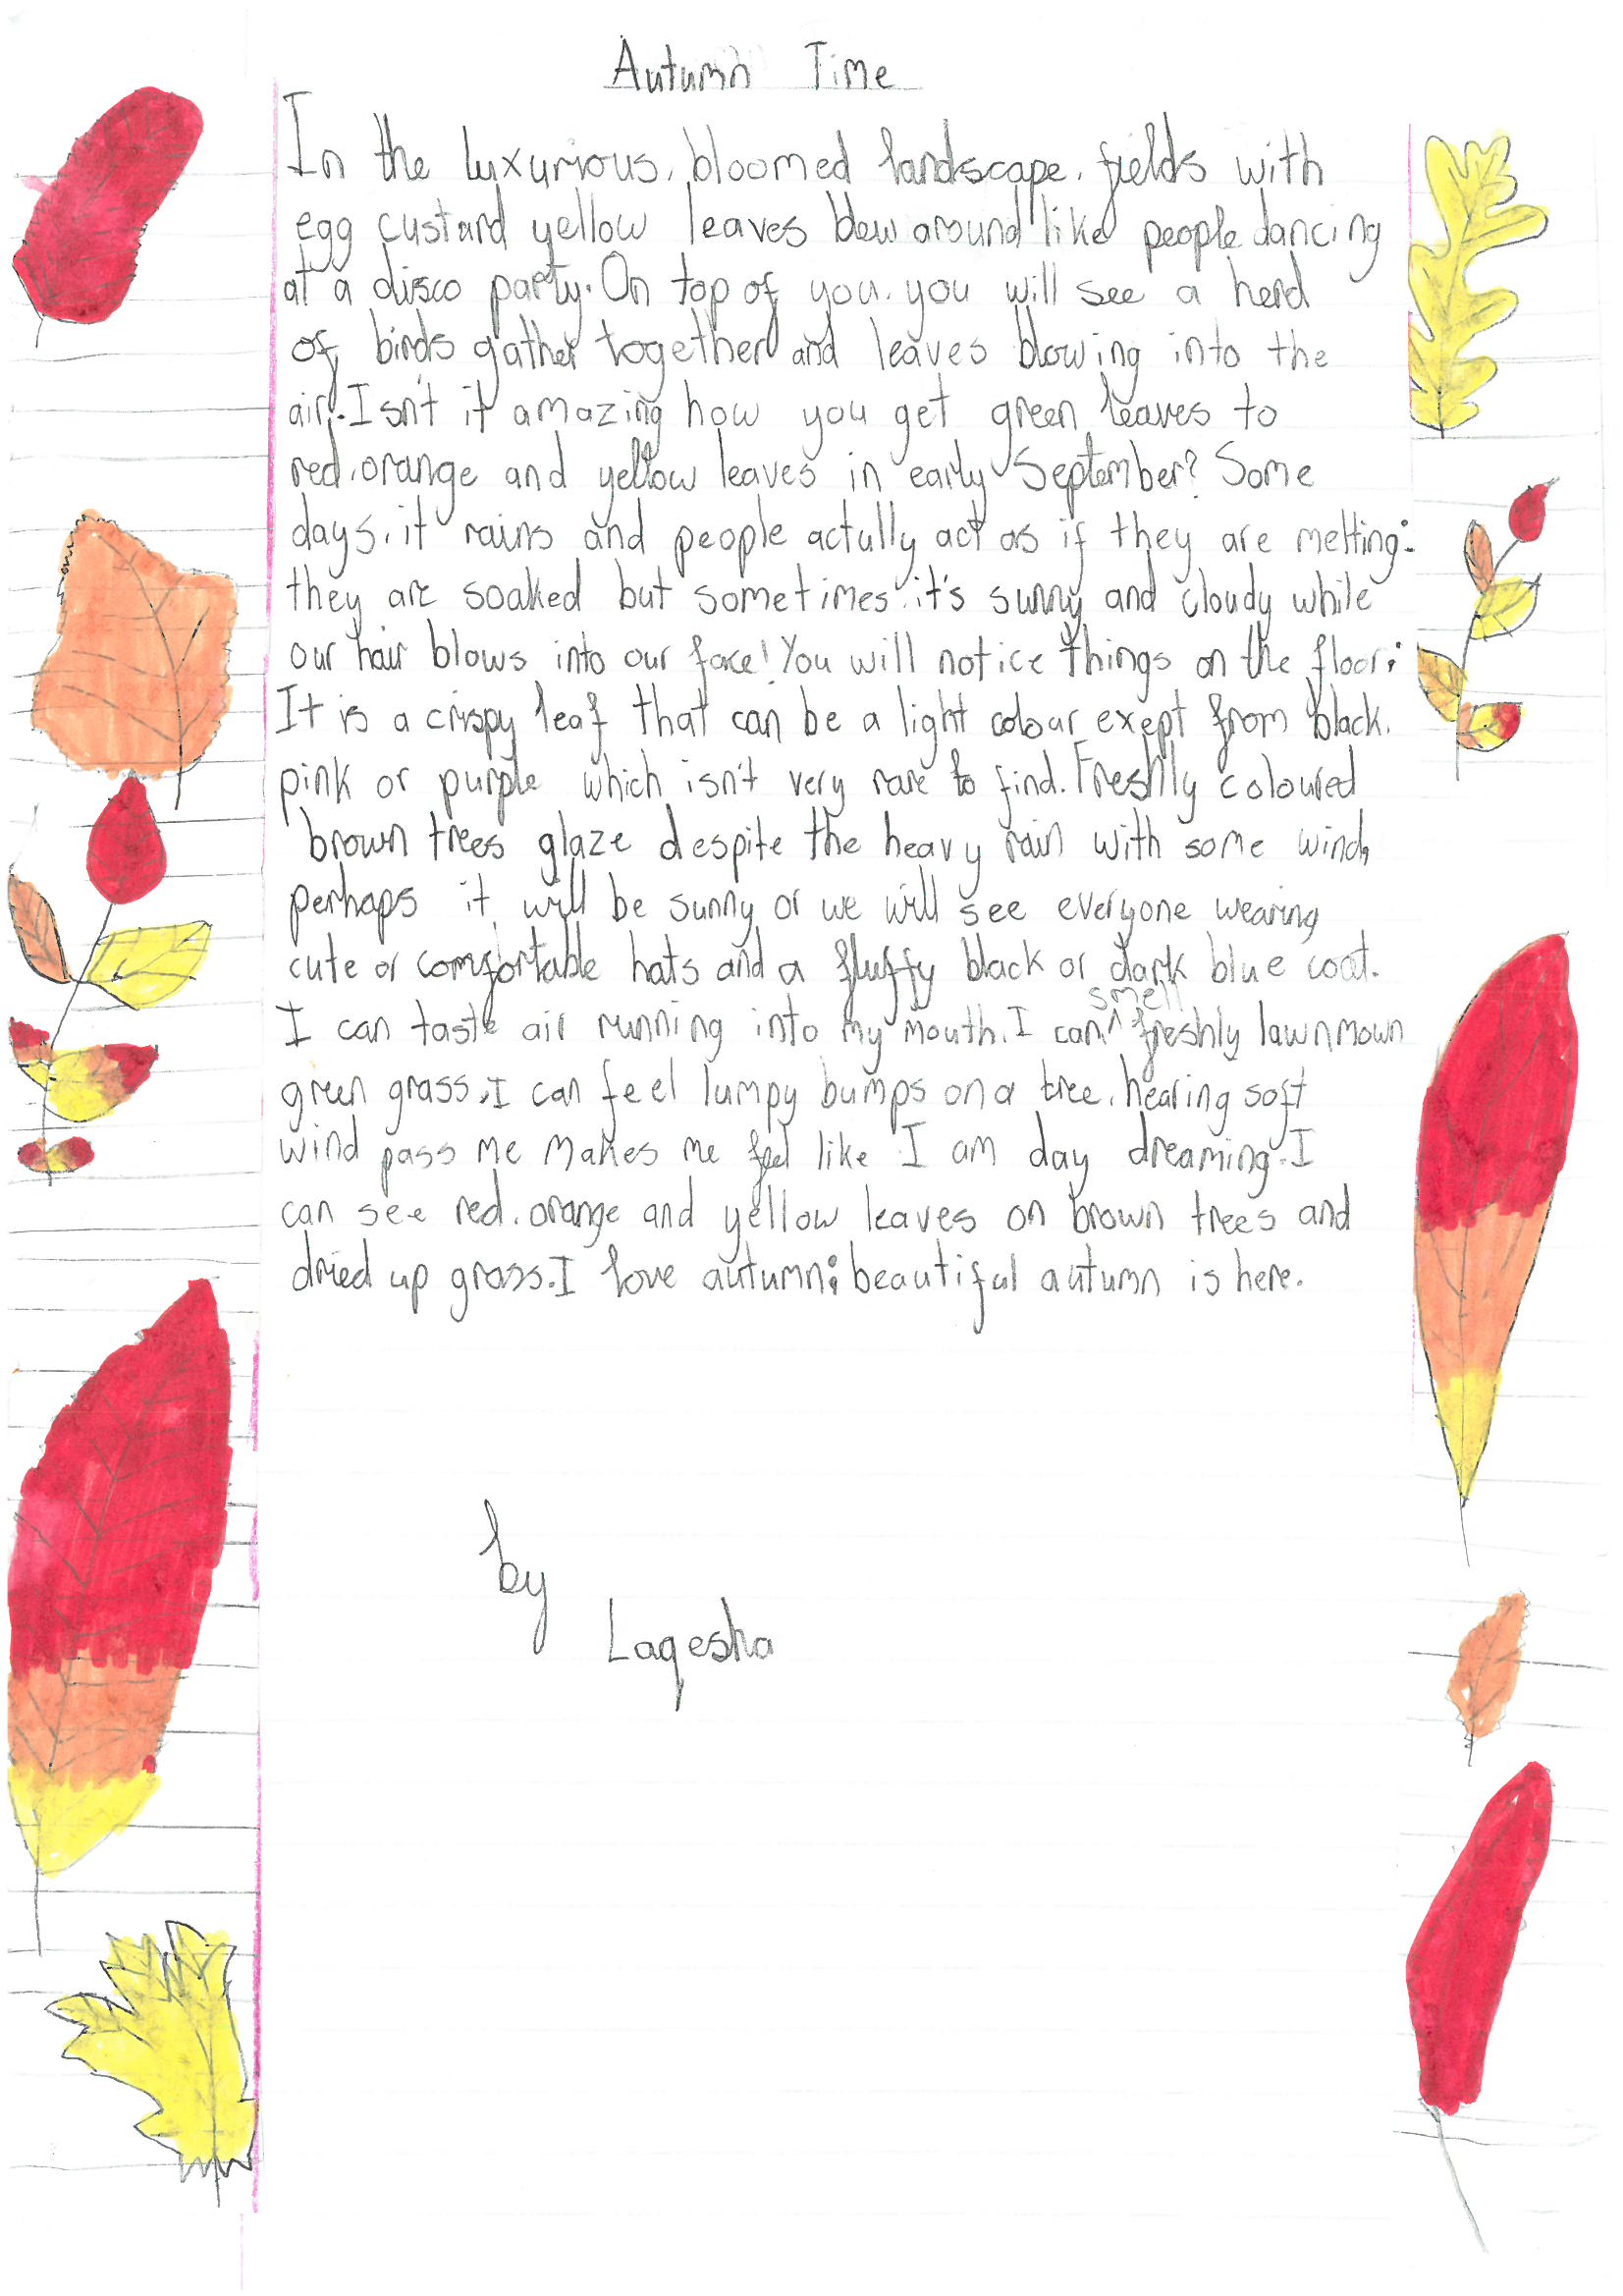 Autumn Time
In the luxurious, bloomed landscape, fields with
egg custard yellow leaves blew around like people dancing
at a disco party. On top of you, you will see a herd
of birds gather together and leaves blowing into the
air. Isn't it amazing how you get green leaves to
red, orange and yellow leaves in early September? Some
days, it rains and people actully act as if they are melting:
they are soaked but sometimes it's sunny and cloudy while
our hair blows into our face! You will notice things on the floor:
It is a crispy leaf that can be a light colour exept from black,
pink or purple which isn't very rare to find. Freshly coloured
brown trees glaze despite the heavy rain with some wind,
perhaps it will be sunny or we will see everyone wearing
cute or comfortable hats and a fluffy black or dark blue coat.
I can taste air running into my mouth, I can ^ smell freshly lawnmown
green grass, I can feel lumpy bumps on a tree, hearing soft
wind pass me makes me feel like I am day dreaming. I
can see red, orange and yellow leaves on brown trees and
dried up grass. I love autumn; beautiful autumn is here.
by
Laqesha